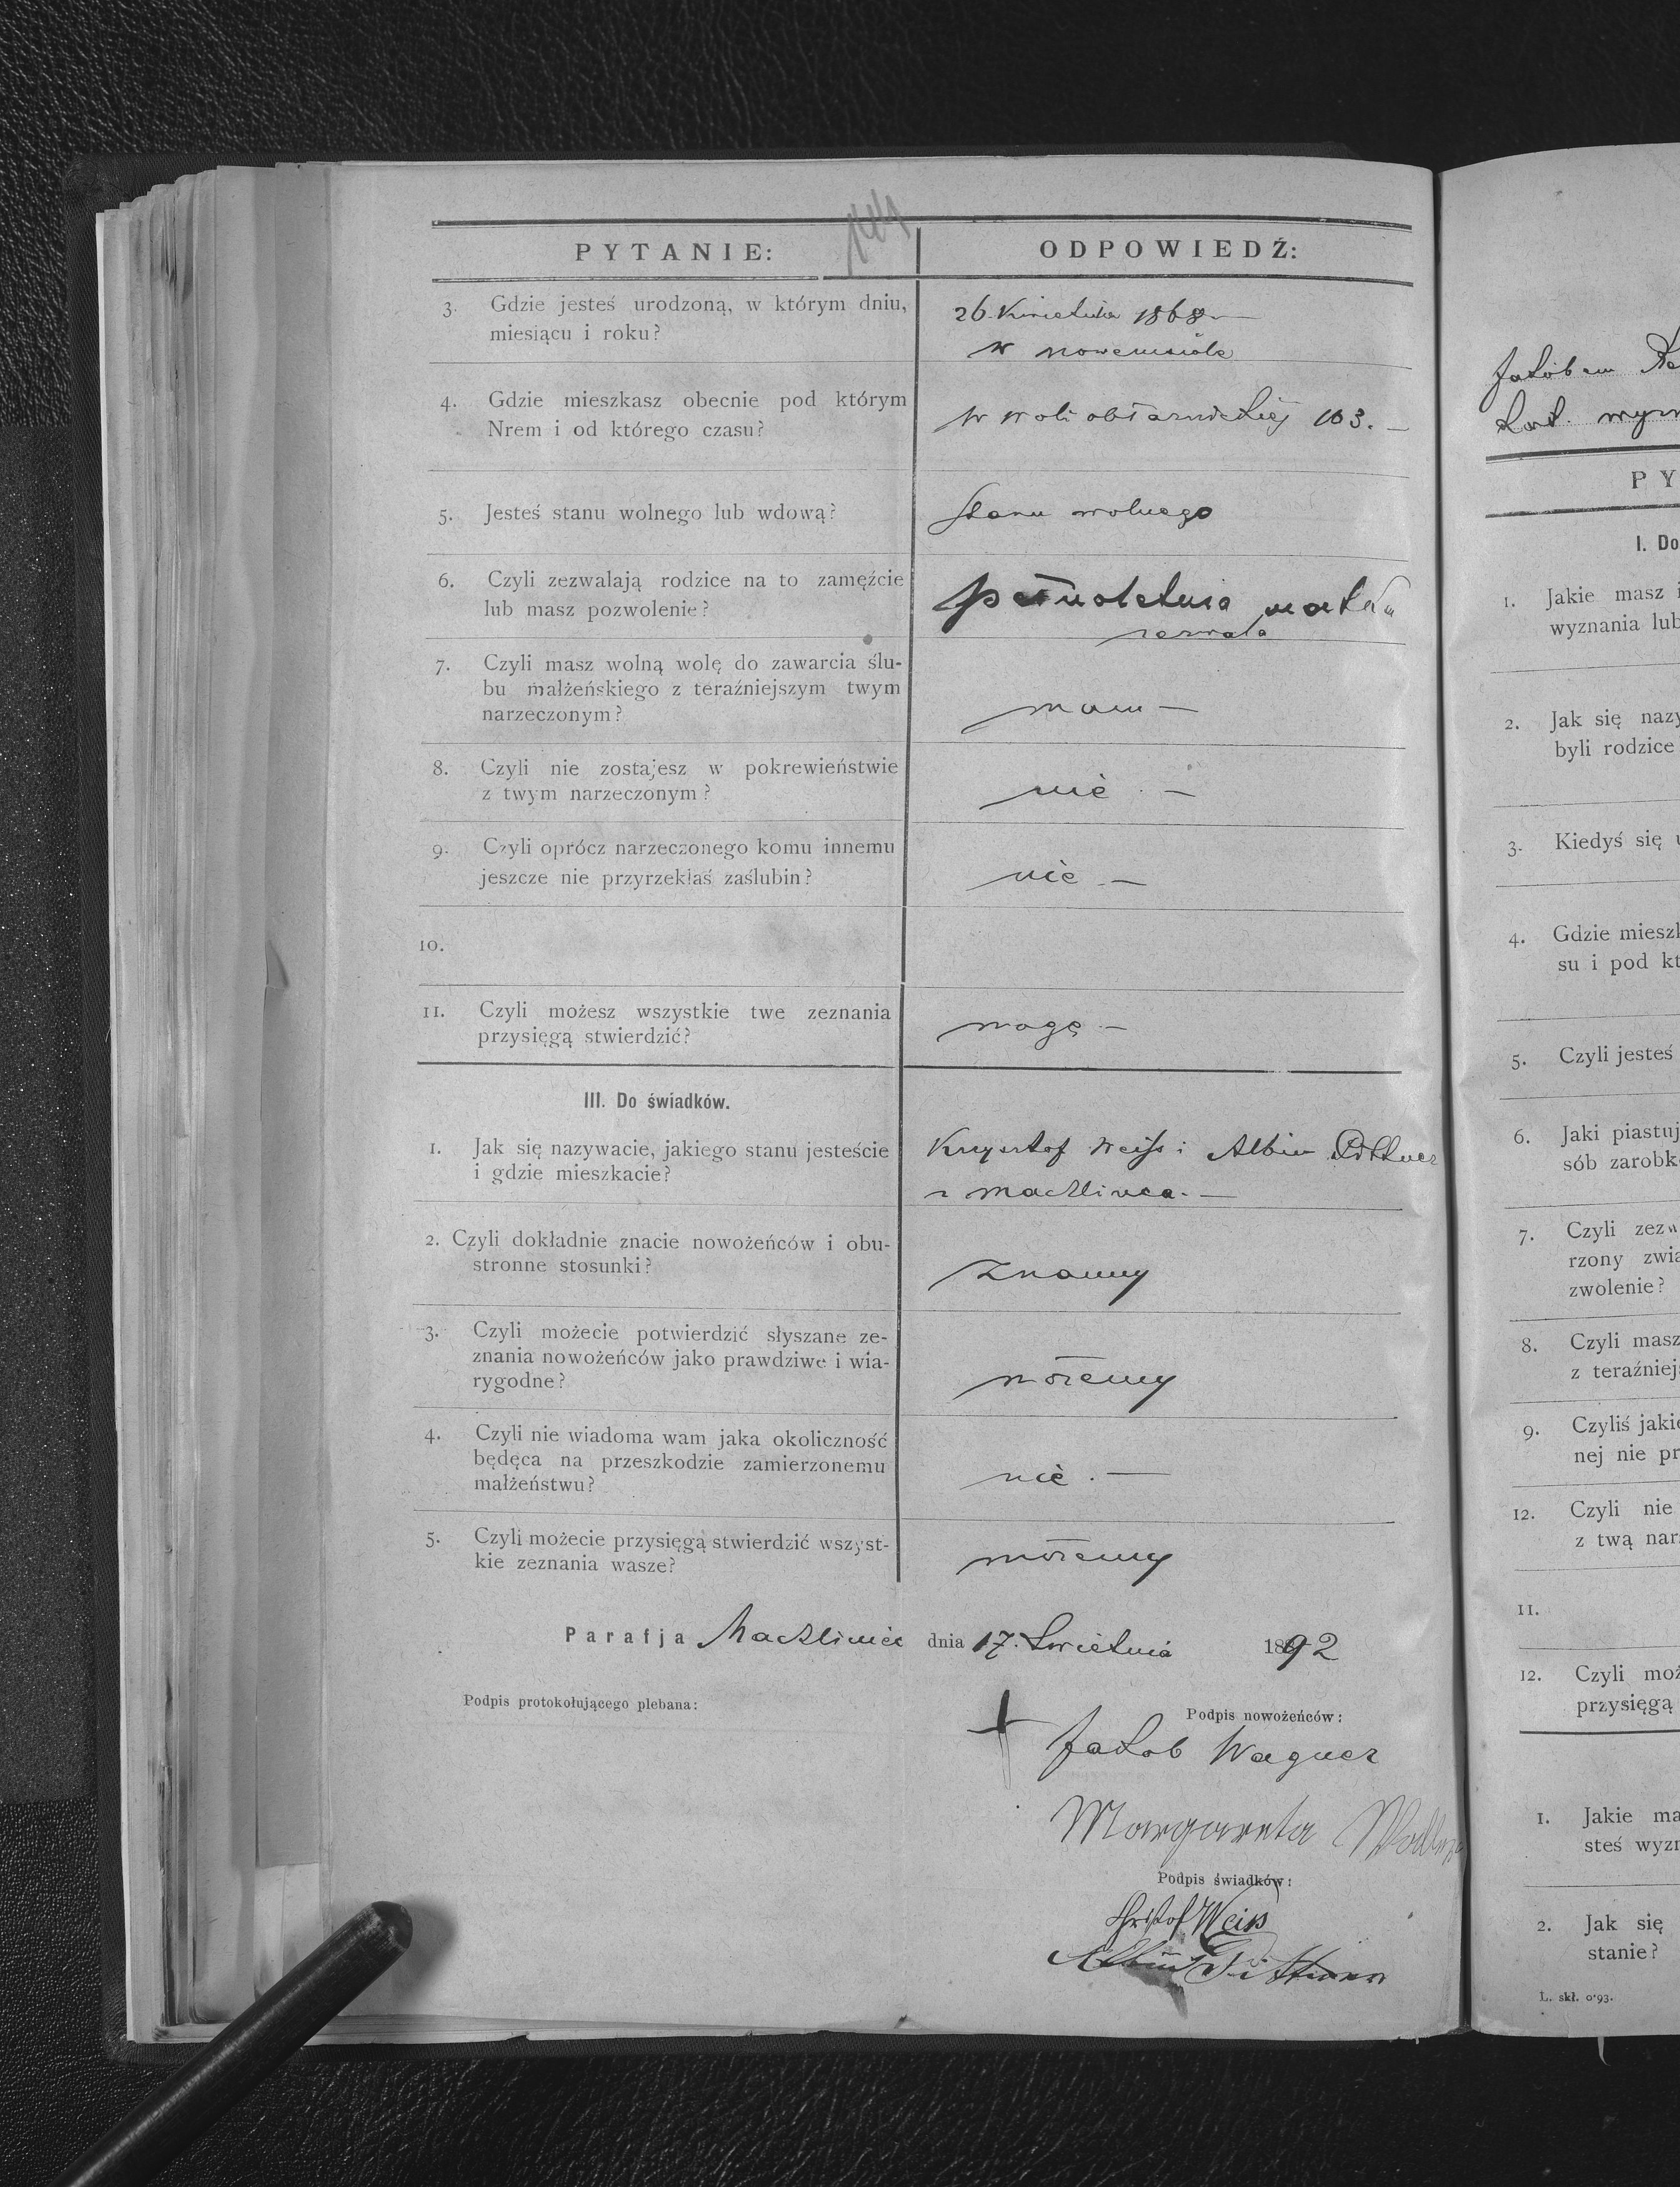 PYTANIE: ODPOWIEDŹ:
3. Gdzie jesteś urodzoną, w którym dniu,
miesiącu i roku?
26 Kwietnia 1868 —
w nowemsiole
4. Gdzie mieszkasz obecnie pod którym
Nrem i od którego czasu?
w woli obłaznickiej 103. —
5. Jesteś stanu wolnego lub wdową?
Stanu wolnego
6. Czyli zezwalają rodzice na to zamęźcie
lub masz pozwolenie?
pełnoletnia matka
zezwala
7. Czyli masz wolną wolę do zawarcia ślu-
bu małżeńskiego z teraźniejszym twym
narzeczonym?
mam —
8. Czyli nie zostajesz w pokrewieństwie
z twym narzeczonym?
nie . —
9. Czyli oprócz narzeczonego komu innemu
jeszcze nie przyrzekłaś zaślubin?
nie . —
10.
11. Czyli możesz wszystkie twe zeznania
przysięgą stwierdzić?
mogę . —
III. Do świadków.
1. Jak się nazywacie, jakiego stanu jesteście
i gdzie mieszkacie?
Krzysztof Weiss i Albin Pittner
z Machlinca. —
2. Czyli dokładnie znacie nowożeńców i obu-
stronne stosunki?
Znamy
3. Czyli możecie potwierdzić słyszane ze-
znania nowożeńców jako prawdziwe i wia-
rygodne?
możemy
4. Czyli nie wiadoma wam jaka okoliczność
będęca na przeszkodzie zamierzonemu
małżeństwu?
nie . —
5. Czyli możecie przysięgą stwierdzić wszyst-
kie zeznania wasze?
możemy
Parafja Machliniec dnia 17. kwietnia 1892
Podpis protokołującego plebana:
Podpis nowożeńców:
+ Jakob Wagner
Margareta
Podpis świadków:
Christof Weiss
Albin Pittner
Jakóbem
kat. wyzn
PY
I. Do
1. Jakie masz i
wyznania lub
2. Jak się nazy
byli rodzice
3. Kiedyś się u
4. Gdzie mieszk
su i pod kt
5. Czyli jesteś
6. Jaki piastuj
sób zarobk
7. Czyli zezw
rzony zwią
zwolenie?
8. Czyli masz
z teraźniej
9. Czyliś jakie
nej nie pr
12. Czyli nie
z twą nar
11.
12. Czyli moż
przysięgą
1. Jakie ma
steś wyzn
2. Jak się
stanie?
L. skł. 0·93.